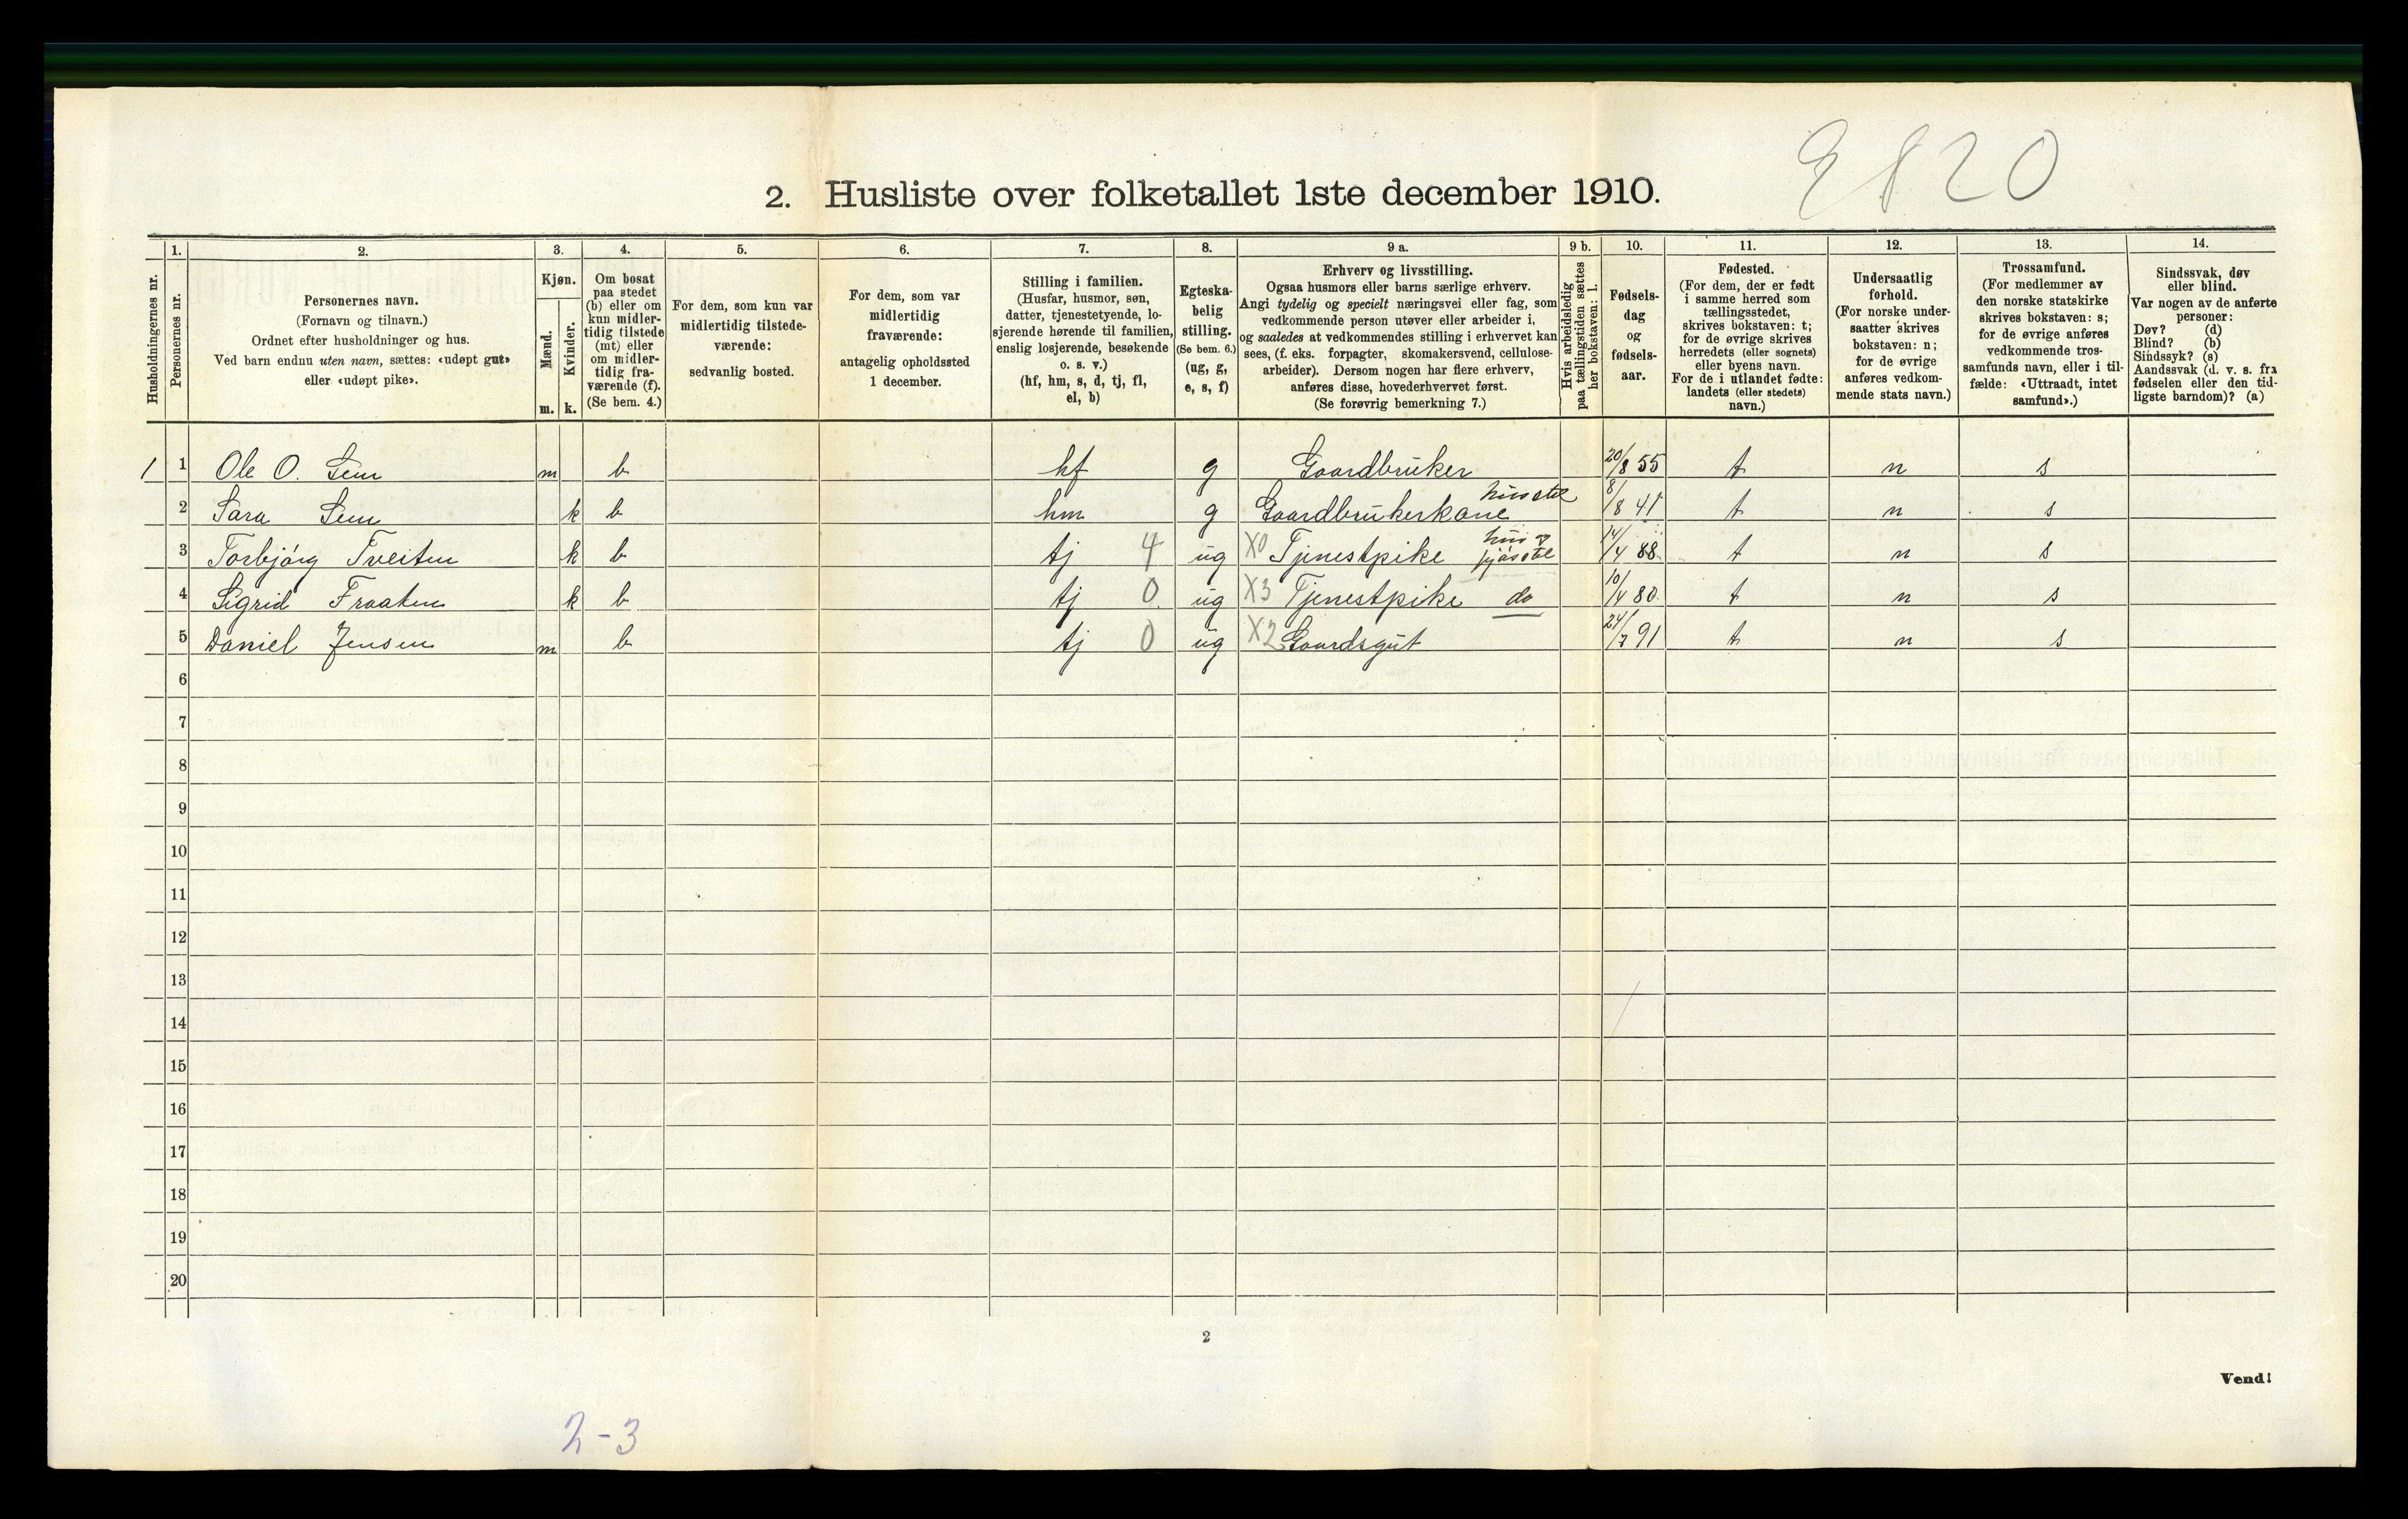 9820
2. Husliste over folketallet 1ste december 1910.
Husholdningernes nr.
1.
Personernes nr.
2.
Personernes navn.
(Fornavn og tilnavn.)
Ordnet efter husholdninger og hus.
Ved barn endnu uten navn, sættes: «udøpt gut»
eller «udøpt pike».
3.
Kjøn.
Mænd.
Kvinder.
m. k.
4.
Om bosat
paa stedet
(b) eller om
kun midler-
tidig tilstede
(mt) eller
om midler-
tidig fra-
værende (f).
(Se bem. 4.)
5.
For dem, som kun var
midlertidig tilstede-
værende:
sedvanlig bosted.
6.
For dem, som var
midlertidig
fraværende:
antagelig opholdssted
1 december.
7.
Stilling i familien.
(Husfar, husmor, søn,
datter, tjenestetyende, lo-
sjerende hørende til familien,
enslig losjerende, besøkende
o. s. v.)
(hf, hm, s, d, tj, fl,
el, b)
8.
Egteska-
belig
stilling.
(Se bem. 6.)
(ug, g,
e, s, f)
9 a.
Erhverv og livsstilling.
Ogsaa husmors eller barns særlige erhverv.
Angi tydelig og specielt næringsvei eller fag, som
vedkommende person utøver eller arbeider i,
og saaledes at vedkommendes stilling i erhvervet kan
sees, (f. eks. forpagter, skomakersvend, cellulose-
arbeider). Dersom nogen har flere erhverv,
anføres disse, hovederhvervet først.
(Se forøvrig bemerkning 7.)
9 b.
Hvis arbeidsledig
paa tællingstiden sættes
her bokstaven: l.
10.
Fødsels-
dag
og
fødsels-
aar.
11.
Fødested.
(For dem, der er født
i samme herred som
tællingsstedet,
skrives bokstaven: t;
for de øvrige skrives
herredets (eller sognets)
eller byens navn.
For de i utlandet fødte:
landets (eller stedets)
navn.)
12.
Undersaatlig
forhold.
(For norske under-
saatter skrives
bokstaven: n;
for de øvrige
anføres vedkom-
mende stats navn.)
13.
Trossamfund.
(For medlemmer av
den norske statskirke
skrives bokstaven: s;
for de øvrige anføres
vedkommende tros-
samfunds navn, eller i til-
fælde: «Uttraadt, intet
samfund».)
14.
Sindssvak, døv
eller blind.
Var nogen av de anførte
personer:
Døv? (d)
Blind? (b)
Sindssyk? (s)
Aandssvak (d. v. s. fra
fødselen eller den tid-
ligste barndom)? (a)
1 1 Ole O. Sem m b hf g Gaardbruker 20/8 55 t n s
2 Sara Sem k b hm g Gaardbrukerkone husstel 8/8 41 t n s
3 Torbjørg Tveiten k b tj 4 ug X0 Tjenestpike hus og fjøsstel 14/4 88 t n s
4 Sigrid Fraaten k b tj 0 ug X3 Tjenestpike do 10/4 80 t n s
5 Daniel Jensen m b tj 0 ug X2 Gaardsgut 24/7 91 t n s
6
7
8
9
10
11
12
13
14
15
16
17
18
19
20
2
Vend!
2-3